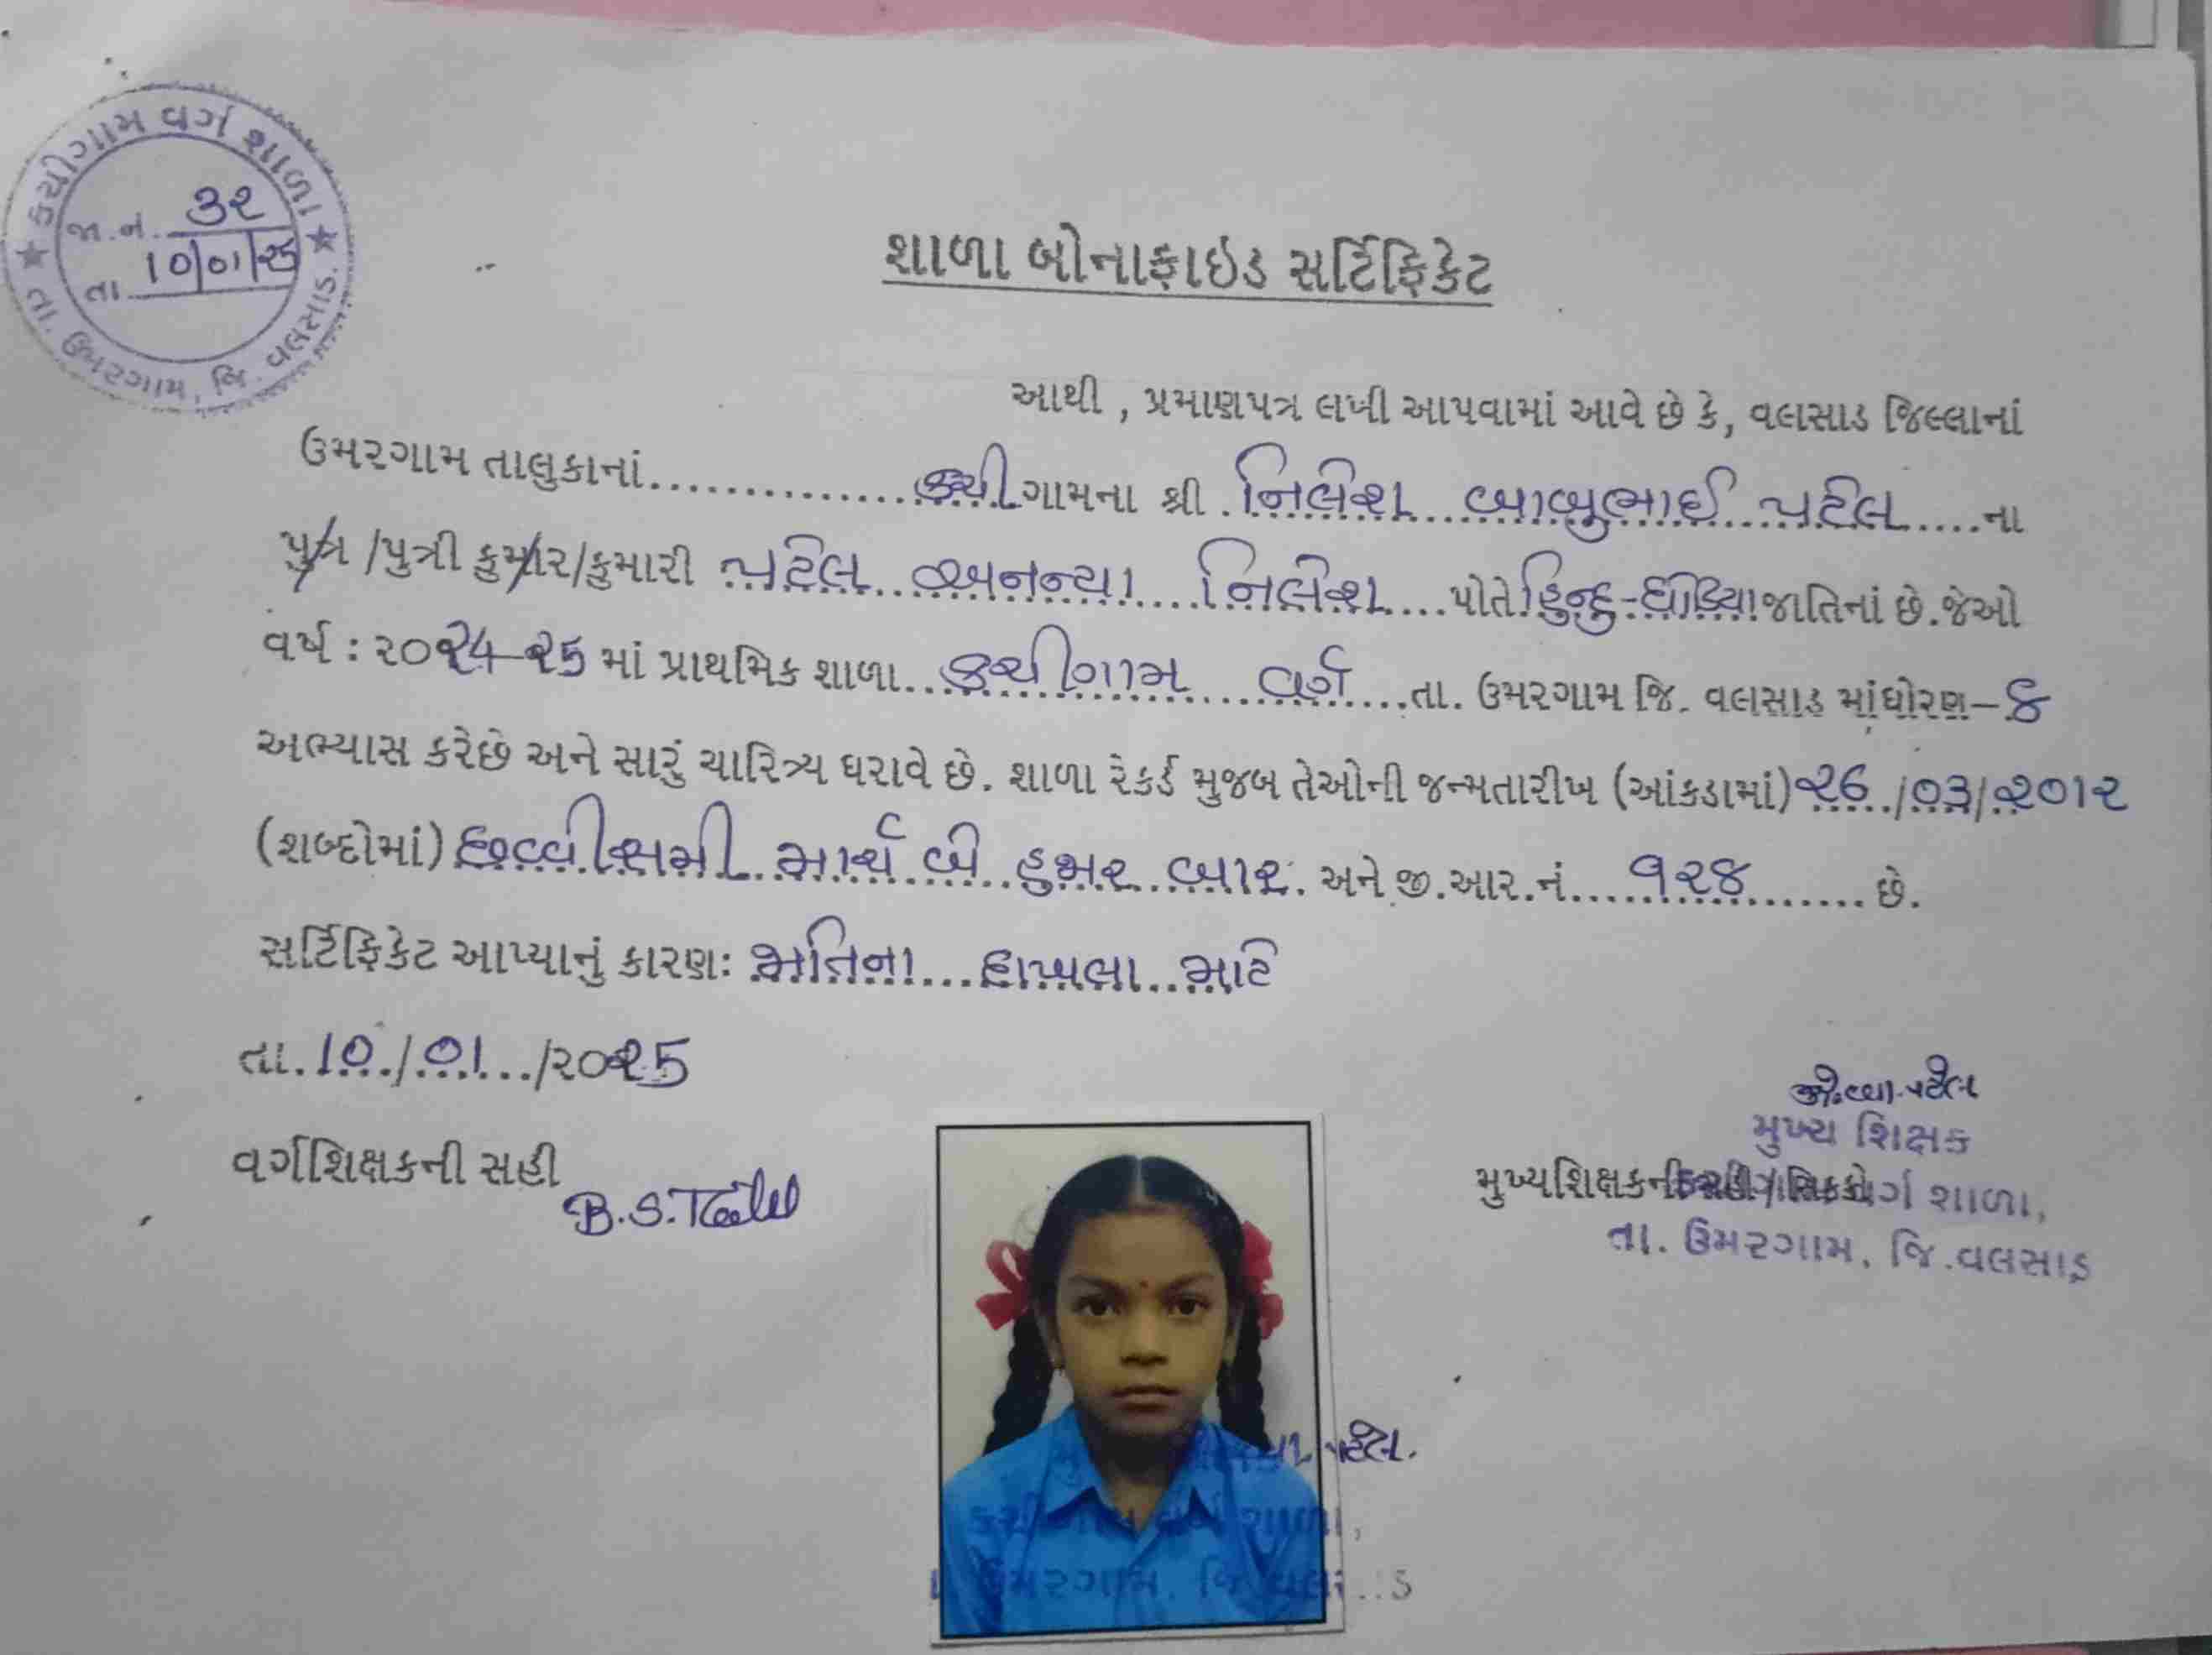 કચીગામ વર્ગ શાળા
જા.નં. ૩૨
તા. 10/01/25
તા. ઉમરગામ, જિ. વલસાડ.
શાળા બોનાફાઇડ સર્ટિફિકેટ
આથી , પ્રમાણપત્ર લખી આપવામાં આવે છે કે, વલસાડ જિલ્લાનાં
ઉમરગામ તાલુકાનાં................કચી ગામના શ્રી . નિલેશ બાબુભાઈ પટેલ .....ના
પુત્ર /પુત્રી કુમાર/કુમારી પટેલ અનન્યા નિલેશ ....પોતે હિન્દુ-ધોડિયા જાતિનાં છે.જેઓ
વર્ષ : ૨૦૨4-૨5 માં પ્રાથમિક શાળા.. કચીગામ વર્ગ ....તા. ઉમરગામ જિ. વલસાડ માંધોરણ-૬
અભ્યાસ કરેછે અને સારું ચારિત્ર્ય ધરાવે છે. શાળા રેકર્ડ મુજબ તેઓની જન્મતારીખ (આંકડામાં) ૨6../૦3/.૨૦1૨
(શબ્દોમાં) છવ્વીસમી માર્ચ બે હજાર બાર. અને જી.આર.નં.... ૧૨૪ ....... છે.
સર્ટિફિકેટ આપ્યાનું કારણઃ જાતિના...દાખલા..માટે
તા.10./.01.../૨૦૨5
વર્ગશિક્ષકની સહી
પટેલ
મુખ્ય શિક્ષક
મુખ્યશિક્ષકની
વર્ગ શાળા,
તા. ઉમરગામ, જિ.વલસાડ
પટેલ.
કચીગામ વર્ગ શાળા,
ઉમરગામ. જિ